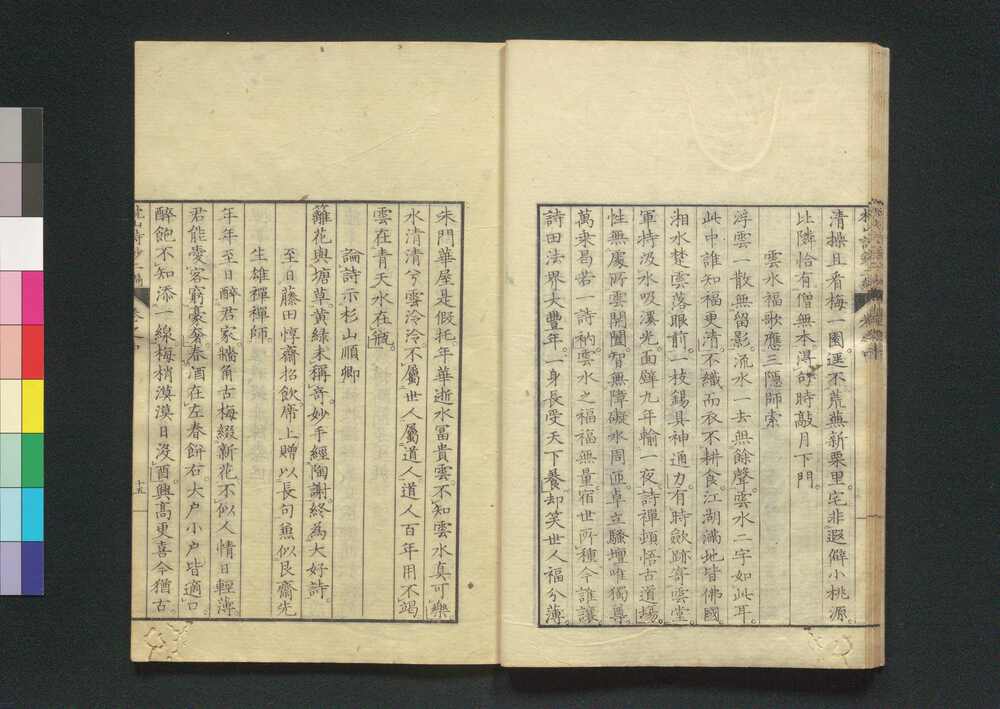 清操且看梅一園逕不荒蕪新栗里。宅非遐僻小桃源。
比隣恰有僧無本得句時敲月下門。
雲水福歌應三隱師索
浮雲一散無留影。流水一去無餘聲。雲水二字如此耳。
此中誰知福更清。不織而衣不耕食。江湖滿地皆佛國
湘水楚雲落眼前。一枝錫具神通力。有時歛跡寄雲堂。
軍持汲水吸溪光。面壁九年輸一夜。詩禪頓悟古道場。
性無處所雲開闔智無障礙水周匝。卓立騷壇唯獨尊
萬乘易若一詩衲。雲水之福福無量。宿世所種今誰讓
詩田法界大豐年。一身長受天下養。却笑世人福分薄。
朱門華屋是假托。年華逝水冨貴雲。不知雲水真可樂。
水清清兮雲泠泠。不屬世人屬道人。道人百年用不竭
雲在青天水在瓶。
論詩示杉山順卿
籬花與塘草。黄緑未稱奇。妙手經陶謝。終為大好詩。
至日藤田惇齋招飲席上贈以長句兼似艮齋先
生雄禪禪師。
年年至日醉君家。牆角古梅綴新花。不似人情日輕薄。
君能愛客窮豪奢。春酒在左春餅右。大户小户皆適口。
醉飽不知添一線。梅梢漠漠日沒酉。興高更喜今猶古。
枕山詩鈔二編
卷之中
十五